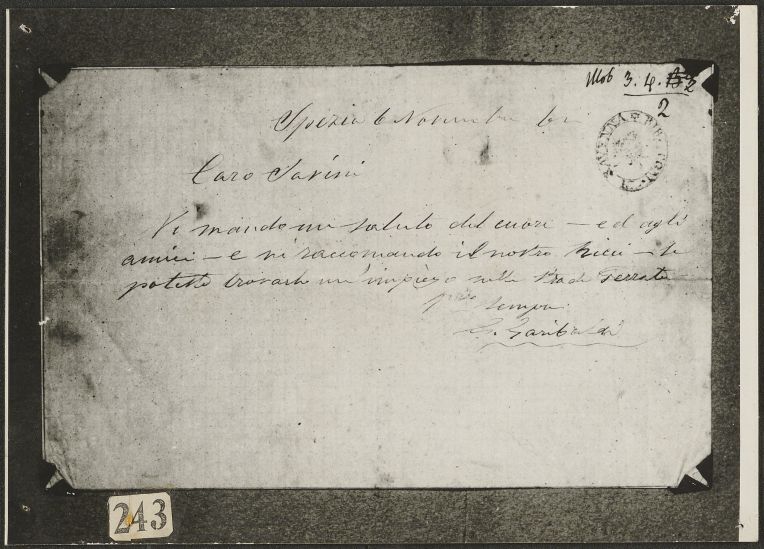 Mob 3.4. 2
2
RAVENNA BIB. COM.
Spezia 6 Novembre
Caro Savini
Vi mando un saluto del cuore – ed agli
amici – e vi raccomando il nostro Ricci – se
poteste trovarle un'impiego nella Strada Ferrata
sempre
G. Garibaldi
243